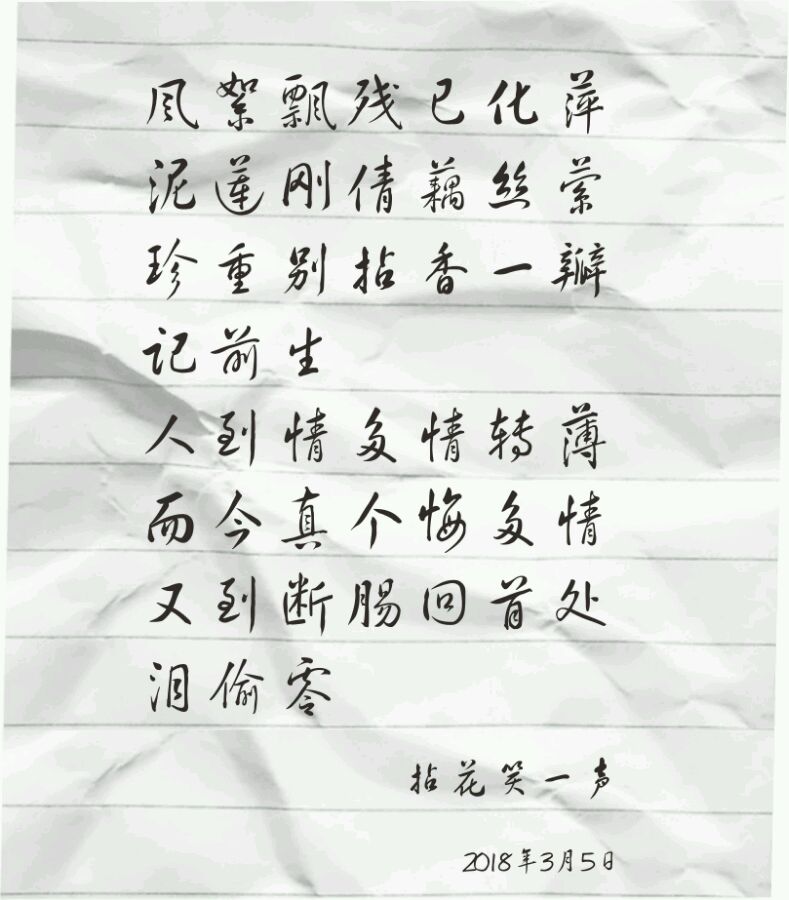 风絮飘残已化萍
泥莲刚倩藕丝萦
珍重别拈香一瓣
记前生
人到情多情转薄
而今真个悔多情
又到断肠回首处
泪偷零
拈花笑一声
2018年3月5日